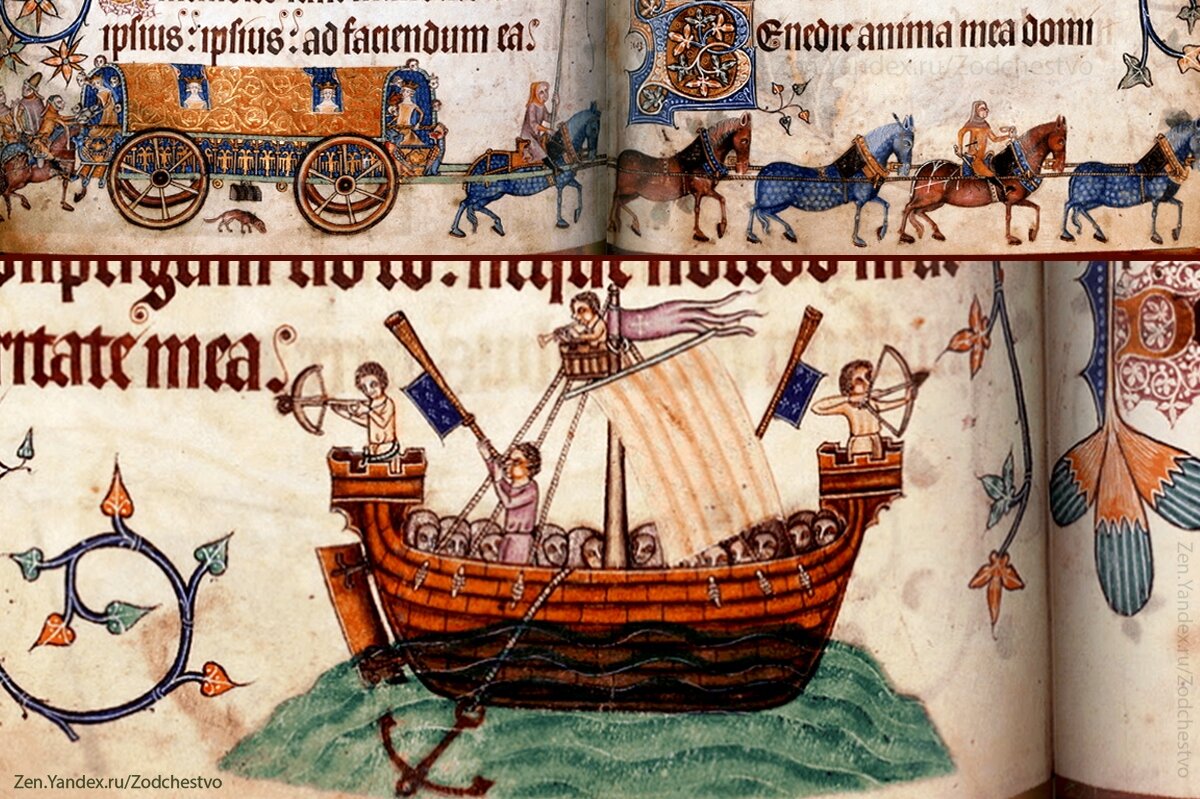 ipsius : ipsius : ad faciendum ea.
Enedic anima mea domi
Zen.Yandex.ru/Zodchestvo
ritate mea.
Zen.Yandex.ru/Zodchestvo
Zen.Yandex.ru/Zodchestvo